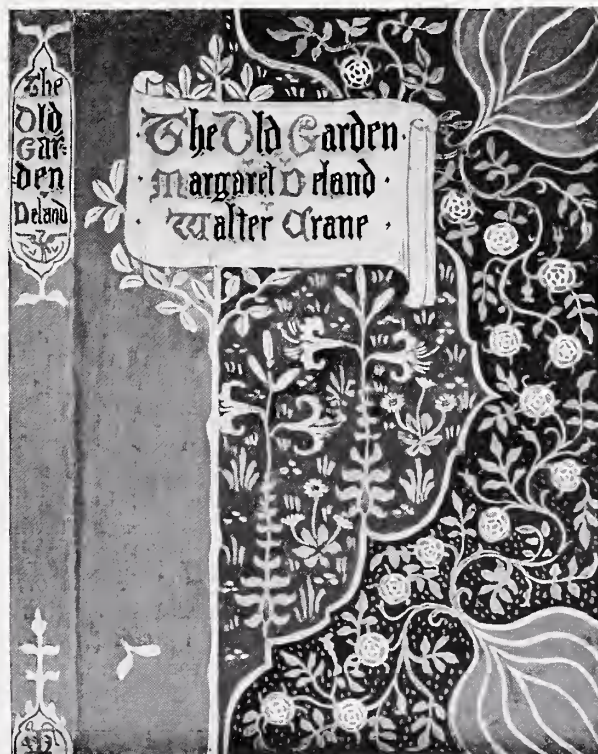 The
Old
Gar-
den
Deland
The Old Garden·
·Margaret Deland·
·Walter Crane·